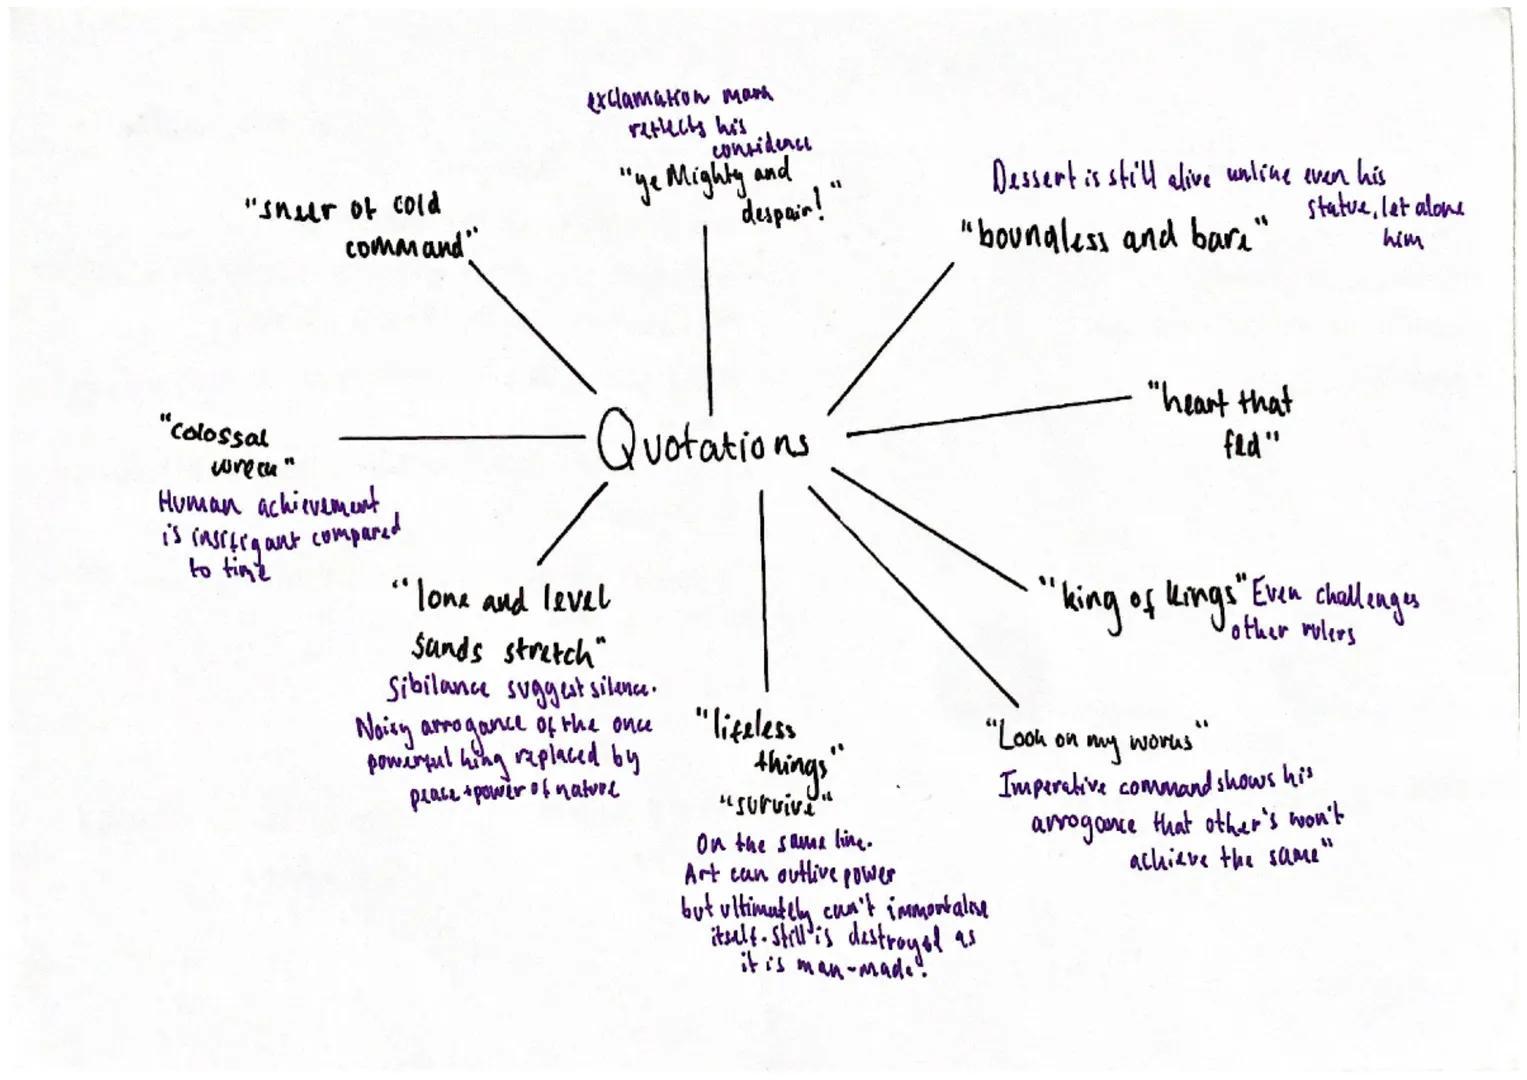 exclamation mark
reflects his
confidence
"ye Mighty and
despair!"
"sneer of cold
command"
Dessert is still alive unlike even his
statue, let alone
him
"boundless and bare"
"heart that
fed"
Quotations
"colossal
wreck"
Human achievement
is insifigant compared
to time
"lone and level
sands stretch"
Sibilance suggest silence.
Noisy arrogance of the once
powerful king replaced by
peace + power of nature
"lifeless
things"
"survive"
On the same line.
Art can outlive power
but ultimately can't immortalise
itself. Still is destroyed as
it is man-made.
"king of kings" Even challenges
other rulers
"Look on my works"
Imperative command shows his
arrogance that other's won't
achieve the same"